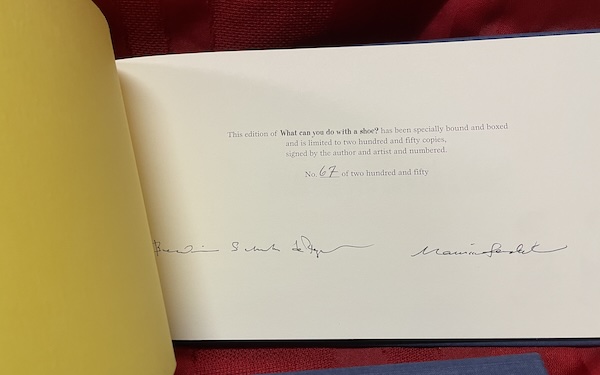 This edition of What can you do with a shoe? has been specially bound and boxed
and is limited to two hundred and fifty copies,
signed by the author and artist and numbered.
No. 67 of two hundred and fifty
Beatrice Schenk de Regniers Maurice Sendak